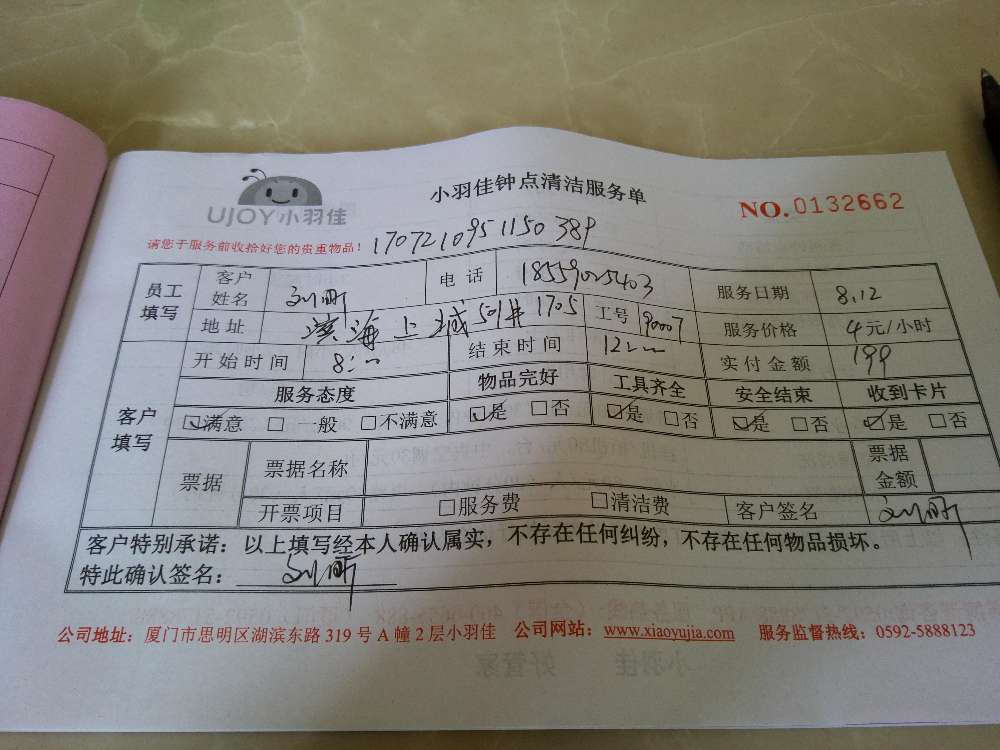 UJOY小羽佳
小羽佳钟点清洁服务单
NO.0132662
请您于服务前收拾好您的贵重物品! 1707210951150389
员工填写 客户姓名 电话 18559025403 服务日期 8.12
地址 滨海上城501#1705 工号 90007 服务价格 4元/小时
开始时间 8: 结束时间 12 实付金额 199
客户填写 服务态度 物品完好 工具齐全 安全结束 收到卡片
☑满意 □一般 □不满意 ☑是 □否 ☑是 □否 ☑是 □否 ☑是 □否
票据 票据名称 票据金额
开票项目 □服务费 □清洁费 客户签名
客户特别承诺:以上填写经本人确认属实,不存在任何纠纷,不存在任何物品损坏。
特此确认签名:
公司地址:厦门市思明区湖滨东路319号A幢2层小羽佳 公司网站:www.xiaoyujia.com 服务监督热线:0592-5888123